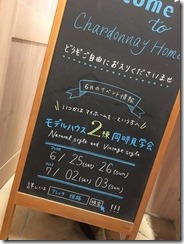 come
to
Chardonnay Home
どうぞご自由にお入りくださいませ
6月のイベント情報
いつかはマイホームを…という方へ
モデルハウス2棟同時見学会
Natural style and Vintage style
6/25(SAT)・26(SUN)
7/02(SAT)・03(SUN)
詳しくは
検索
!!!